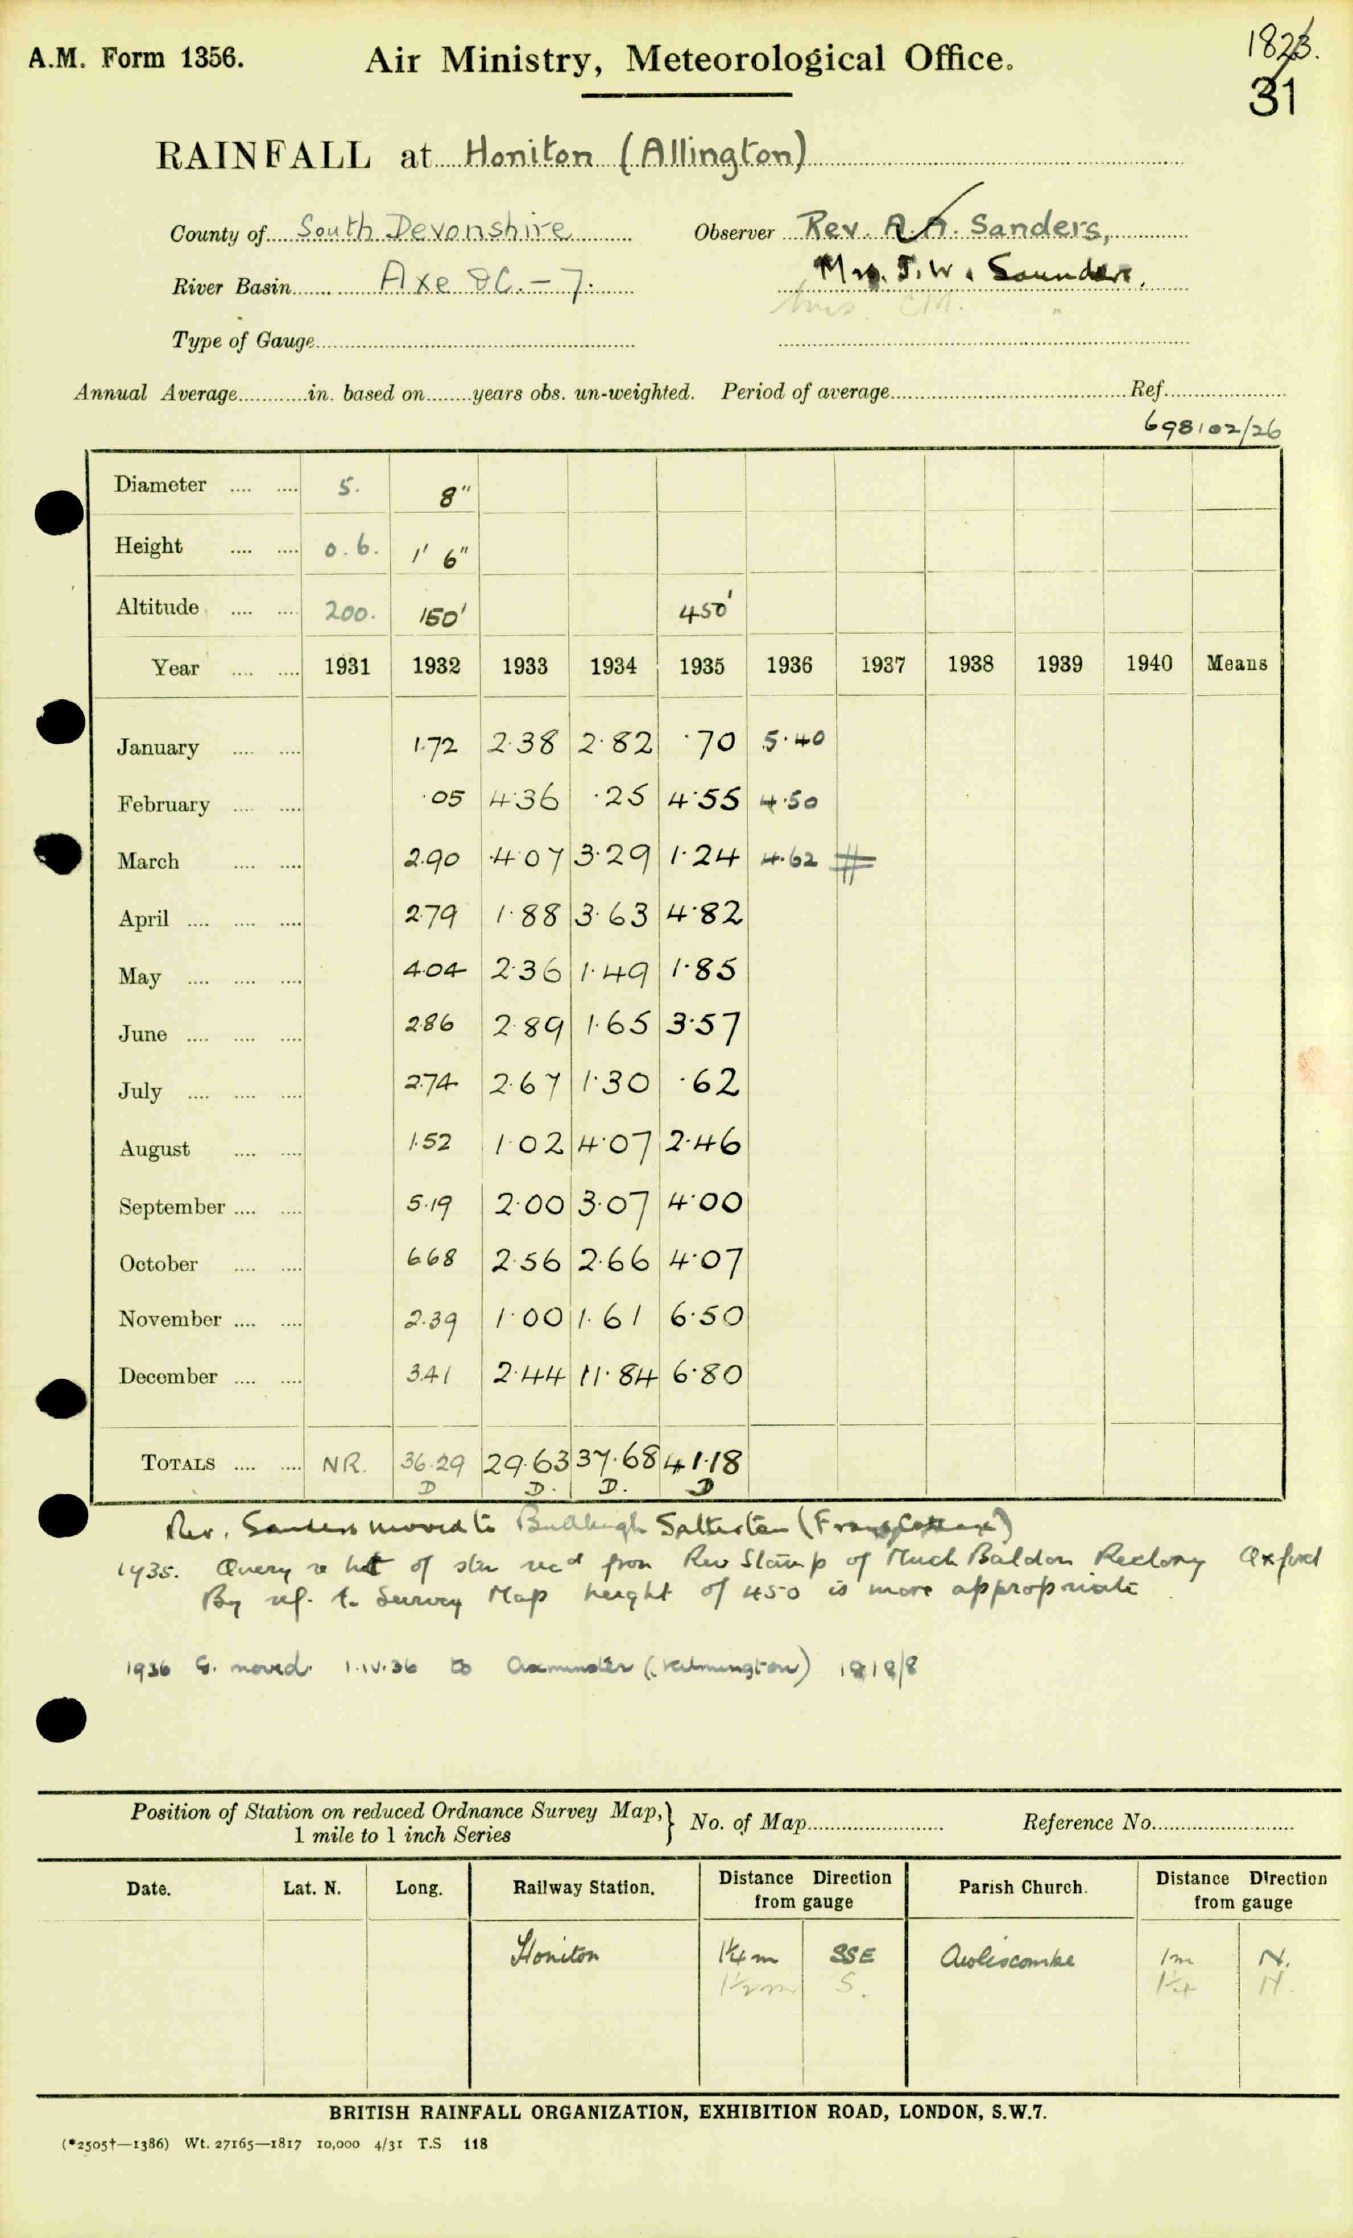 A.M. Form 1356. Air Ministry, Meteorological Office. 1823.
31
RAINFALL at Honiton (Allington)
County of South Devonshire Observer Rev. A. A. Sanders,
River Basin Axe &C. – 7. J. W. Saunders.
Type of Gauge
Annual Average in. based on years obs. un-weighted. Period of average Ref.
698102/26
Diameter 5. 8"
Height 0.6. 1' 6"
Altitude 200. 150' 450'
Year 1931 1932 1933 1934 1935 1936 1937 1938 1939 1940 Means
January 1.72 2.38 2.82 .70 5.40
February .05 4.36 .25 4.55 4.50
March 2.90 4.07 3.29 1.24 4.62 #
April 2.79 1.88 3.63 4.82
May 4.04 2.36 1.49 1.85
June 2.86 2.89 1.65 3.57
July 2.74 2.67 1.30 .62
August 1.52 1.02 4.07 2.46
September 5.19 2.00 3.07 4.00
October 6.68 2.56 2.66 4.07
November 2.39 1.00 1.61 6.50
December 3.41 2.44 11.84 6.80
TOTALS NR. 36.29 29.63 37.68 41.18
D D. D. D
Rev. Sanders moved to Budleigh Salterton
1935. Query re ht of stn recd from Rev Stamp of Much Baldon Rectory Oxford
By ref. to Survey Map height of 450 is more appropriate
1936 G. moved 1.IV.36 to Axminster (Kilmington) 1818/8
Position of Station on reduced Ordnance Survey Map, 1 mile to 1 inch Series } No. of Map Reference No.
Date. Lat. N. Long. Railway Station. Distance Direction from gauge Parish Church. Distance Direction from gauge
Honiton 1¼ m SSE Awliscombe 1m N.
1½ m S. 1¼ N.
BRITISH RAINFALL ORGANIZATION, EXHIBITION ROAD, LONDON, S.W.7.
(*2505†—1386) Wt. 27165—1817 10,000 4/31 T.S 118